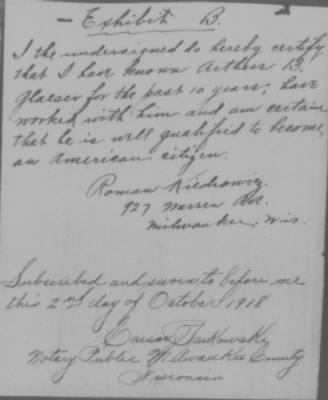 - Exhibit B. -
I the undersigned do hereby certify
that I have known Arthur B.
Glaeser for the past 10 years; have
worked with him and am certain
that he is well qualified to become
an American citizen.
Roman Kiedrowicz
927 Warren Ave.
Milwaukee, Wis.
Subscribed and sworn to before me
this 2nd day of October 1918
Caesar
Notary Public Milwaukee County
Wisconsin